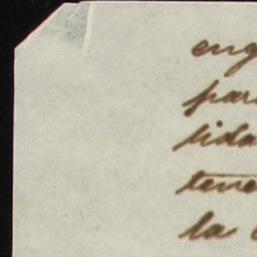 eng
par
tida
tene
la